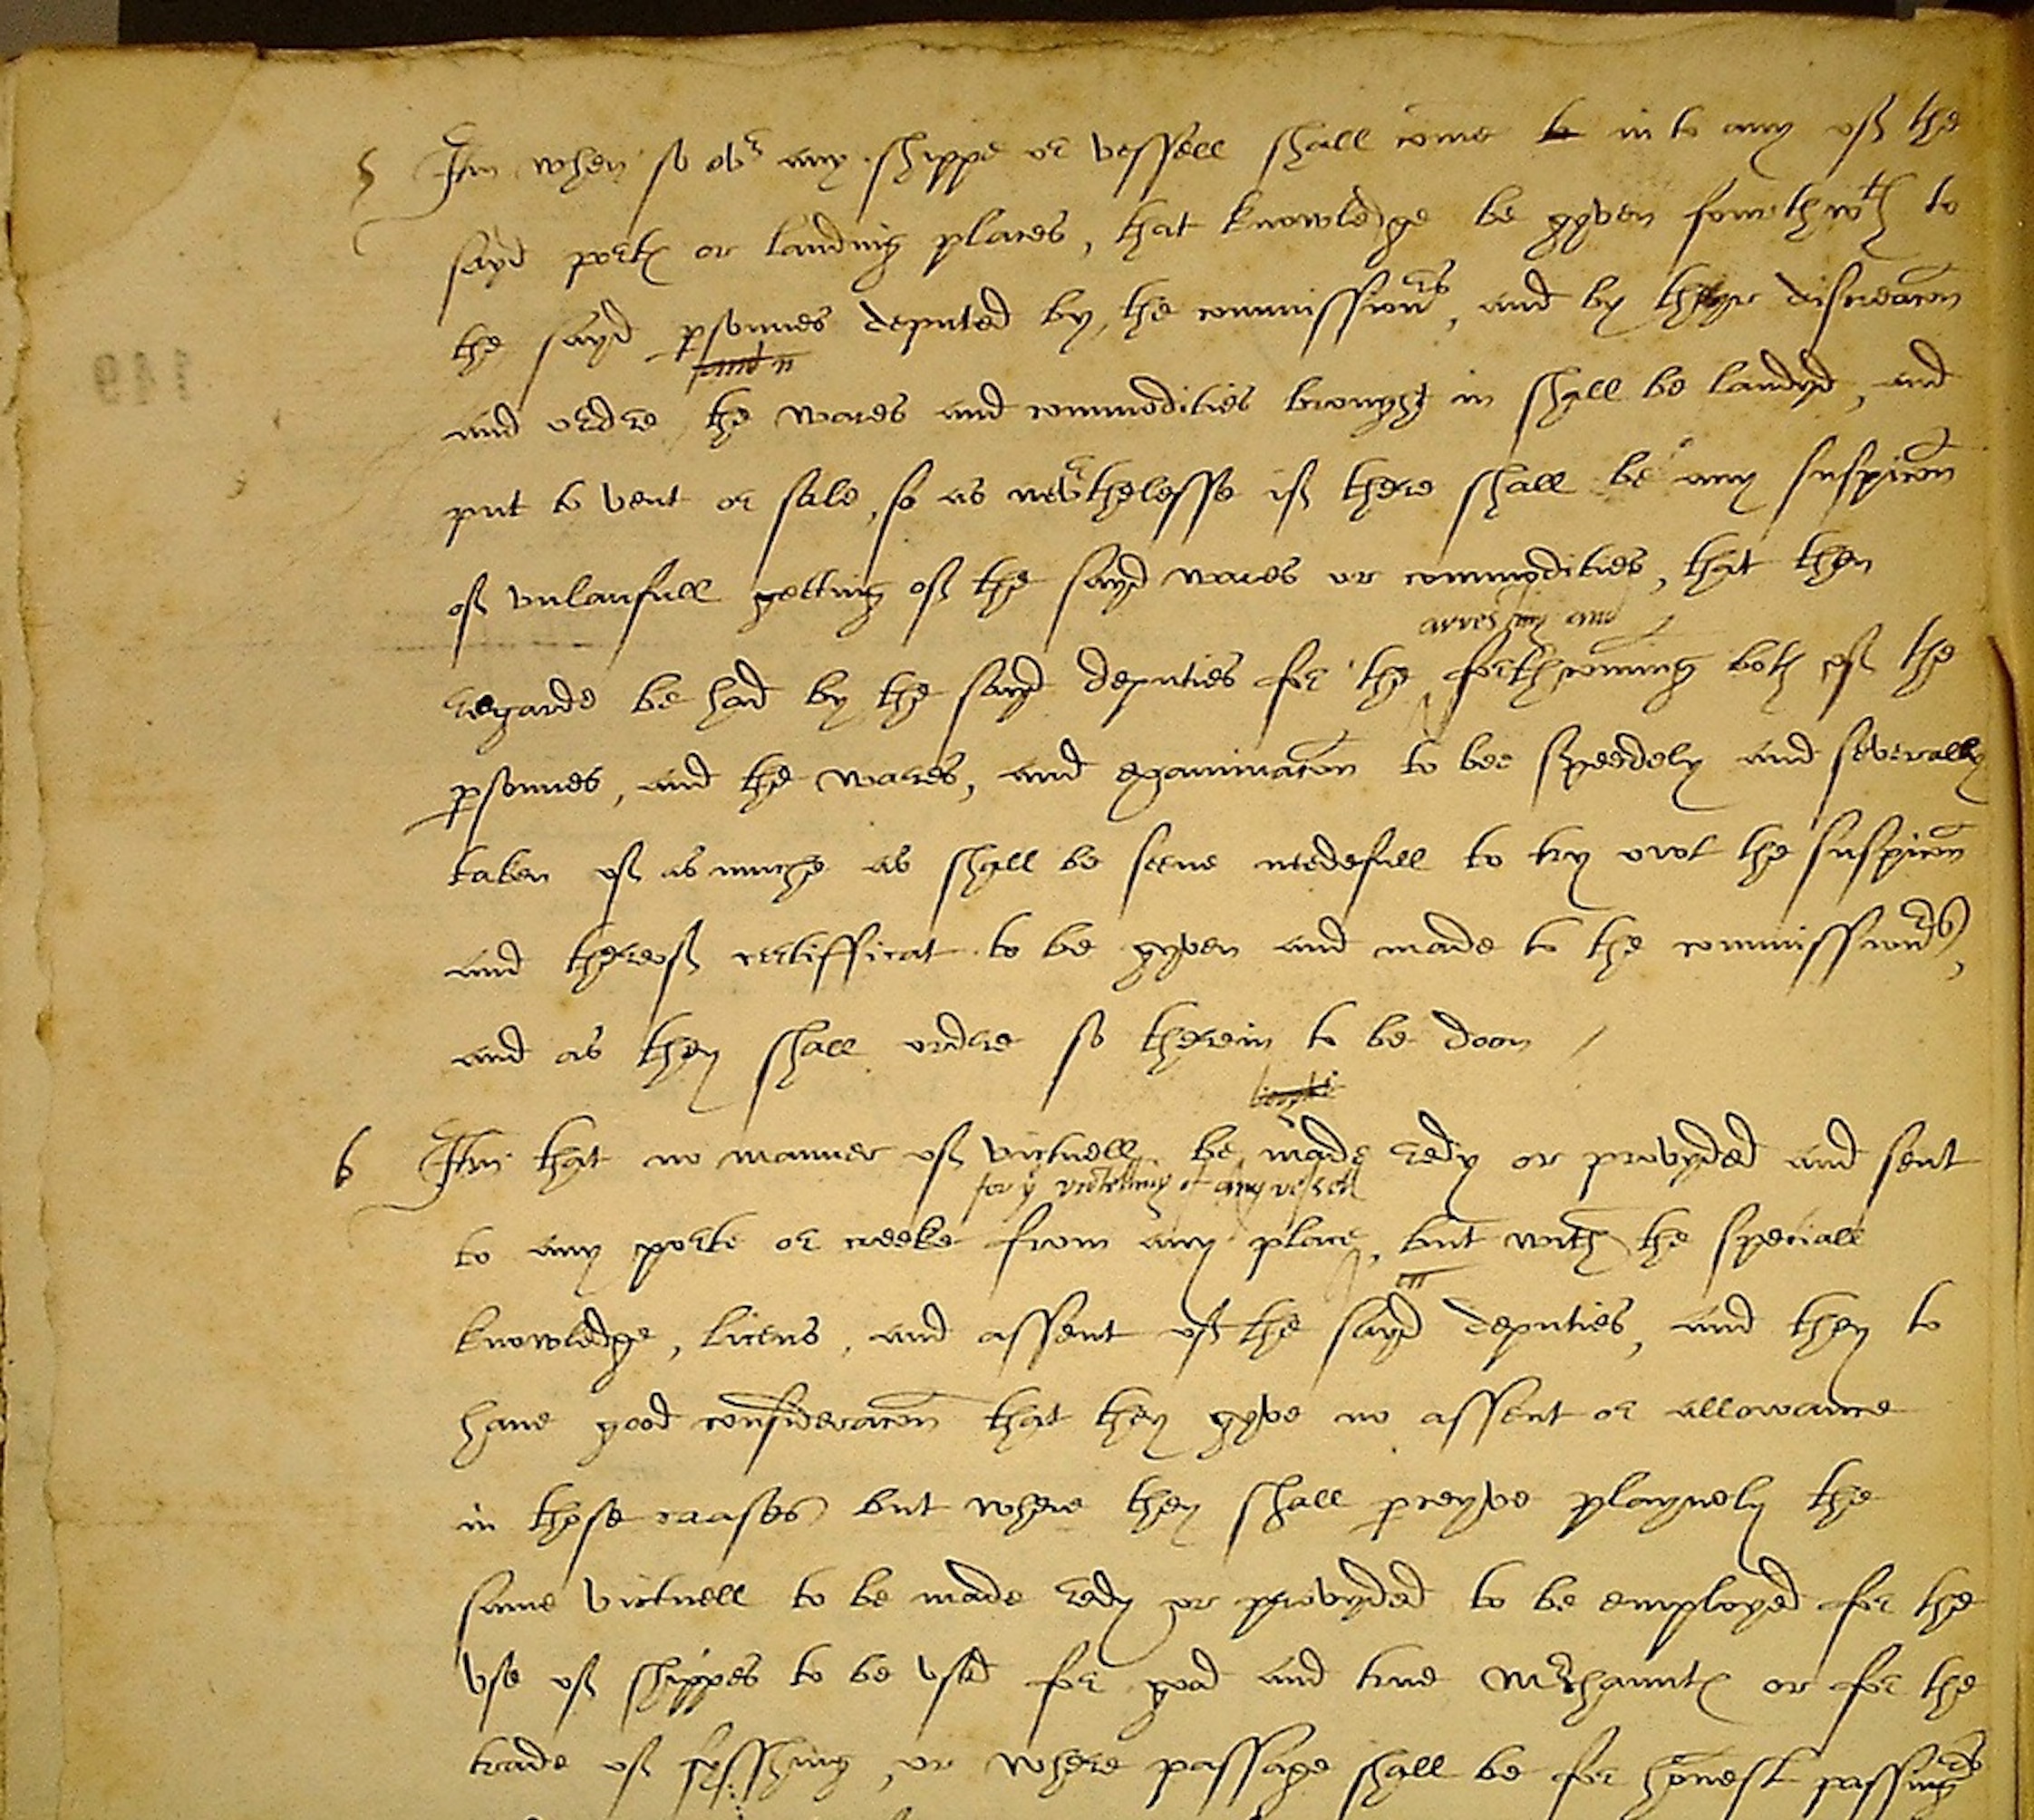 5 Itm when so ev^r any shippe or vessell shall come to in to any off the
sayd port(es) or landing places, that knowledge be gyven fourthw^th to
the sayd psonnes deputed by the commission^rs, and by theyr discreac̃on
and ordre the wares and commodities brought in shall be landyd, and
put to vent or sale, so as nev^rthelesse iff there shall be any suspic̃on
off unlaufull getting off the sayd wares or commodities, that then
arresting and
regarde be had by the sayd deputies for the forthcom̃ing both off the
psonnes, and the wares, and examinac̃on to bee speedely and severally
taken off as muche as shall be seene nedefull to try owt the suspic̃on
and thereoff certifficat to be gyven and made to the commission^rs,
and as they shall ordre so therein to be doon /
6 Itm that no manner off victuell be made redy or provyded and sent
for y^e victelling of any vessell
to any porte or creeke from any place, but with the speciall
knowledge, licens, and assent off the sayd deputies, and they to
have good considerac̃on that they gyve no assent or allowance
in those caases but where they shall pceyve playnely the
same victuell to be made redy or provyded to be employed for the
use off shippes to be used for good and true M^rchaunt(es) or for the
trade off fysshing, or where passage shall be for honest passing^rs